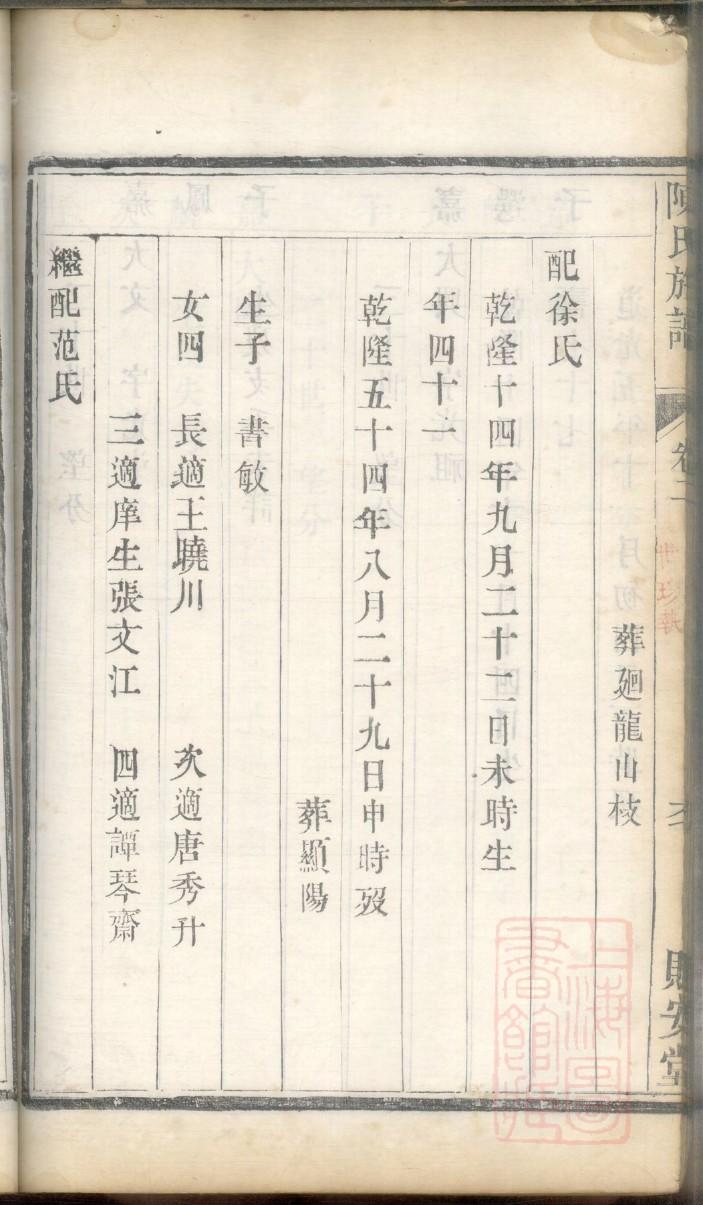 陳氏族譜 卷二
葬廻龍山枝
配徐氏
乾隆十四年九月二十二日未時生
年四十一
乾隆五十四年八月二十九日申時歿
葬顯陽
生子 書敏
女四 長適王曉川 次適唐秀升
三適庠生張文江 四適譚琴齋
繼配范氏
上海圖書館藏